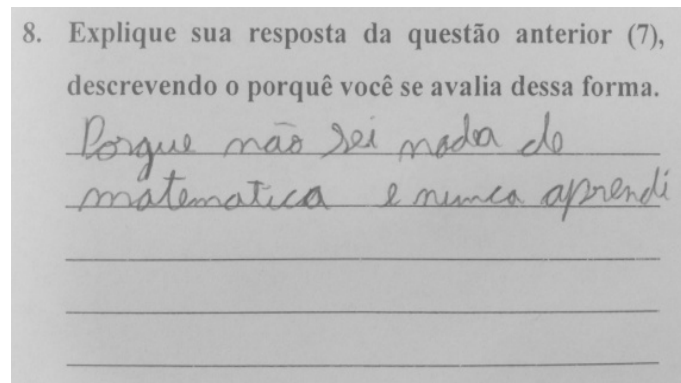 8. Explique sua resposta da questão anterior (7),
descrevendo o porquê você se avalia dessa forma.
Porque não sei nada de
matematica e nunca aprendi